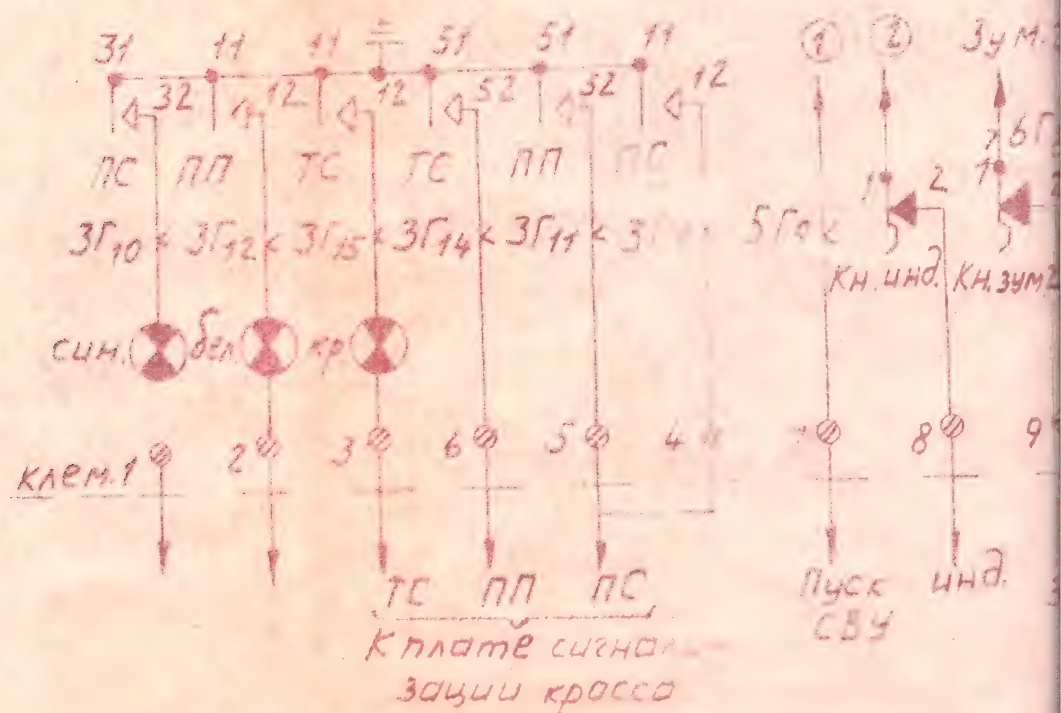 31 11 11 51 51 11 1 2 Зум.
32 12 12 52 52 12
ПС ПП ТС ТС ПП ПС 1 2 1
3Г10 3Г12 3Г15 3Г14 3Г11
Кн. инд. Кн. зум.
син. бел. кр
клем. 1 2 3 6 5 4 7 8 9
ТС ПП ПС Пуск инд.
СВУ
К плате сигнали-
зации кросса